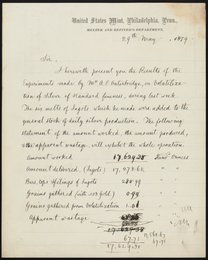 United States Mint, Philadelphia, Penn.
MELTER AND REFINER'S DEPARTMENT,
29th May, 1879
Sir,
I herewith present you the Results of the
Experiment made by Mr A. E. Outerbridge, on Volatiliza-
tion of Silver of Standard fineness, during last week.
The six melts of Ingots which he made were added to the
general stock of daily silver production. The following
statement of the amount worked, the amount produced,
& the apparent wastage will exhibit the whole operation.
Amount worked 17,629.38 Fine Ounces
Amount delivered (Ingots)
Bars, clips & filings of Ingots
Grains gathered
Grains gathered from Volatilization
Apparent wastage
17,629.38
67.71
17,629.38